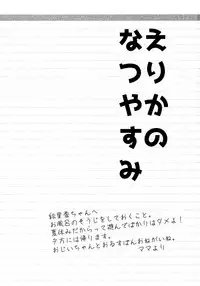 えりかの
なつやすみ
絵里香ちゃんへ
お風呂のそうじをしておくこと。
夏休みだからって遊んでばかりはダメよ！
夕方には帰ります。
おじいちゃんとおるすばんおねがいね。
ママより